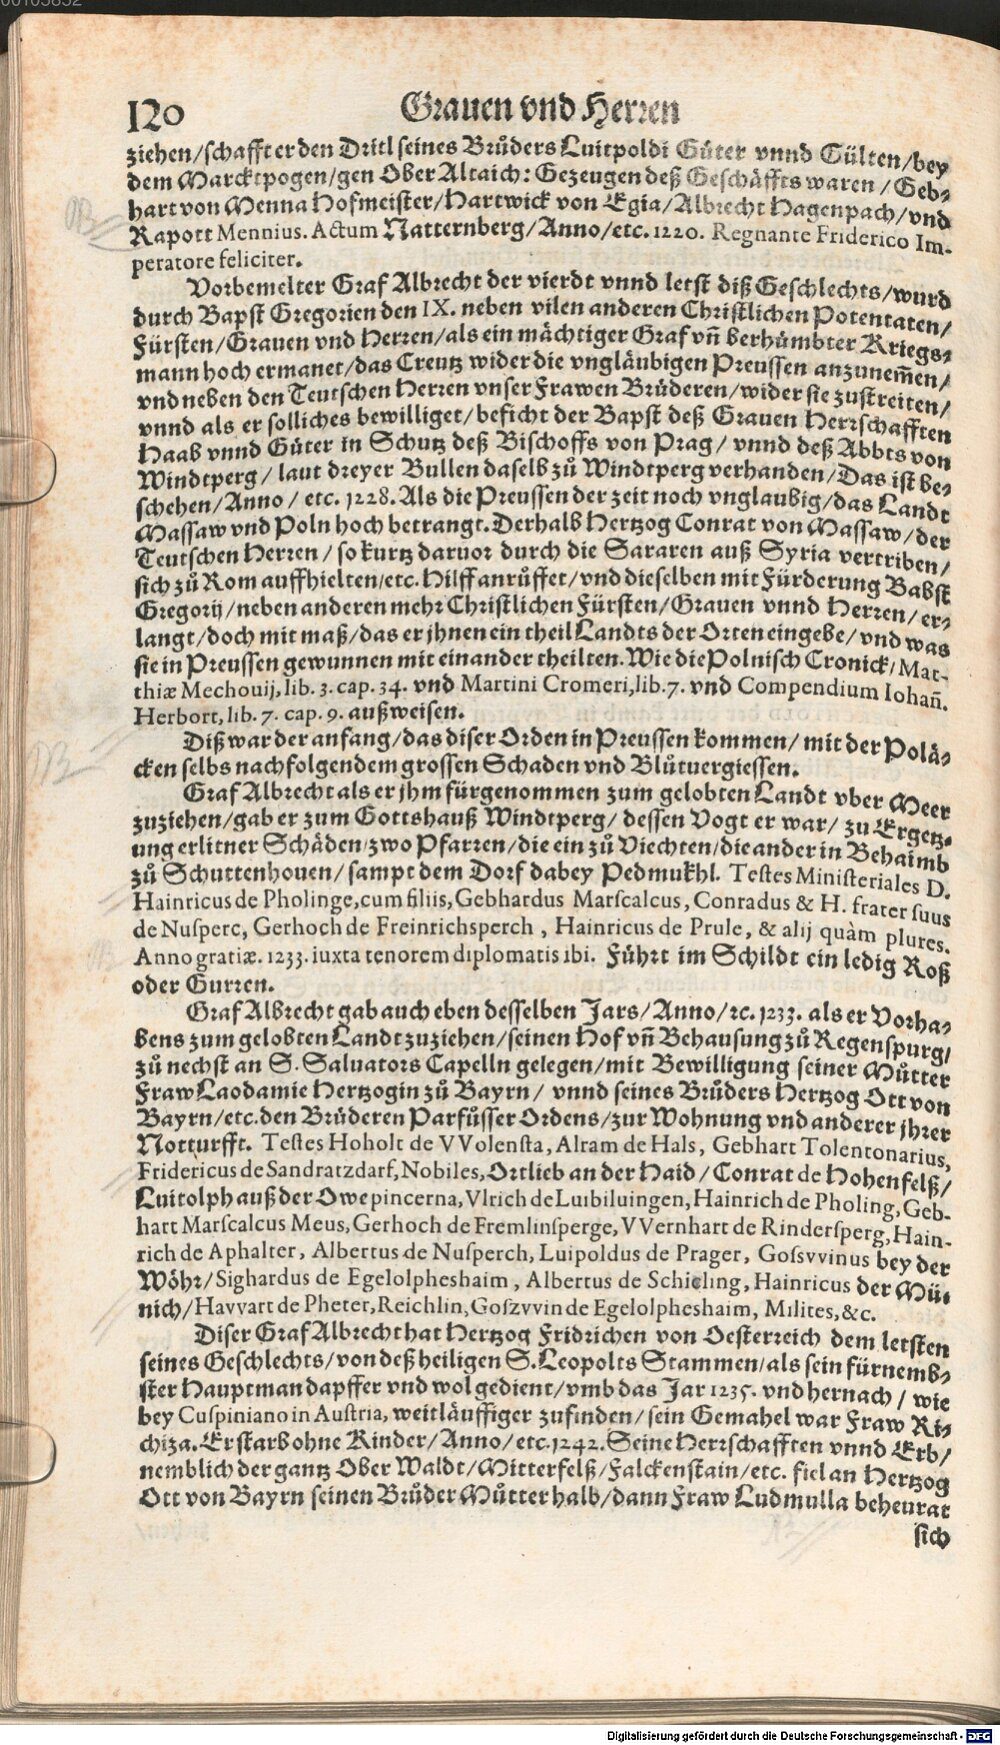 120 Grauen vnd Herren
ziehen/schafft er den Dritl seines Brůders Luitpoldi Güter vnnd Gülten/bey
dem Marcktpogen/gen Ober Altaich: Gezeugen deß Geschäffts waren/Geb-
hart von Menna Hofmeister/Hartwick von Egia/Albrecht Hagenpach/vnd
Rapott Mennius. Actum Natternberg/Anno/etc. 1220. Regnante Friderico Im-
peratore feliciter.
Vorbemelter Graf Albrecht der vierdt vnnd letst diß Geschlechts/wurd
durch Bapst Gregorien den IX. neben vilen anderen Christlichen Potentaten/
Fürsten/Grauen vnd Herren/als ein mächtiger Graf vñ berhümbter Kriegs-
mann hoch ermanet/das Creutz wider die vngläubigen Preussen anzunem̃en/
vnd neben den Teutschen Herren vnser Frawen Brüderen/wider sie zustreiten/
vnnd als er solliches bewilliget/beficht der Bapst deß Grauen Herrschafften
Haab vnnd Güter in Schutz deß Bischoffs von Prag/ vnnd deß Abbts von
Windtperg/ laut dreyer Bullen daselb zů Windtperg verhanden/Das ist be-
schehen/Anno/ etc. 1228. Als die Preussen der zeit noch vnglaubig/das Landt
Massaw vnd Poln hoch betrangt. Derhalb Hertzog Conrat von Massaw/der
Teutschen Herren/ so kurtz daruor durch die Sararen auß Syria vertriben/
sich zů Rom auffhielten/etc. Hilff anrůffet/vnd dieselben mit Fürderung Babst
Gregorij/neben anderen mehr Christlichen Fürsten/Grauen vnnd Herren/er-
langt/doch mit maß/das er jhnen ein theil Landts der Orten eingebe/vnd was
sie in Preussen gewunnen mit einander theilten. Wie die Polnisch Cronick/Mat-
thiæ Mechouij, lib. 3. cap. 34. vnd Martini Cromeri, lib. 7. vnd Compendium Iohañ.
Herbort, lib. 7. cap. 9. außweisen.
Diß war der anfang/das diser Orden in Preussen kommen/ mit der Polä-
cken selbs nachfolgendem grossen Schaden vnd Blůtuergiessen.
Graf Albrecht als er jhm fürgenommen zum gelobten Landt vber Meer
zuziehen/gab er zum Gottshauß Windtperg/ dessen Vogt er war/ zu Ergetz-
ung erlitner Schäden/zwo Pfarren/die ein zů Viechten/die ander in Behaimb
zů Schuttenhouen/sampt dem Dorf dabey Pedmukhl. Testes Ministeriales D.
Hainricus de Pholinge, cum filiis, Gebhardus Marscalcus, Conradus & H. frater suus
de Nusperc, Gerhoch de Freinrichsperch, Hainricus de Prule, & alij quàm plures.
Anno gratiæ. 1233. iuxta tenorem diplomatis ibi. Führt im Schildt ein ledig Roß
oder Gurren.
Graf Albrecht gab auch eben desselben Jars/Anno/ꝛc. 1233. als er Vorha-
bens zum gelobten Landt zuziehen/seinen Hof vñ Behausung zů Regenspurg/
zů nechst an S. Saluators Capelln gelegen/mit Bewilligung seiner Můtter
Fraw Laodamie Hertzogin zů Bayrn/ vnnd seines Brůders Hertzog Ott von
Bayrn/etc. den Brüderen Parfůsser Ordens/zur Wohnung vnd anderer jhrer
Notturfft. Testes Hoholt de VVolensta, Alram de Hals, Gebhart Tolentonarius,
Fridericus de Sandratzdarf, Nobiles, Ortlieb an der Haid/Conrat de Hohenfelß/
Luitolph auß der Owe pincerna, Vlrich de Luibiluingen, Hainrich de Pholing, Geb-
hart Marscalcus Meus, Gerhoch de Fremlinsperge, VVernhart de Rindersperg, Hain-
rich de Aphalter, Albertus de Nusperch, Luipoldus de Prager, Gosvvinus bey der
Wöhr/Sighardus de Egelolpheshaim, Albertus de Schieling, Hainricus der Mü-
nich/Havvart de Pheter, Reichlin, Goszvvin de Egelolpheshaim, Milites, &c.
Diser Graf Albrecht hat Hertzog Fridrichen von Oesterreich dem letsten
seines Geschlechts/von deß heiligen S. Leopolts Stammen/als sein fürnemb-
ster Hauptman dapffer vnd wol gedient/vmb das Jar 1235. vnd hernach/ wie
bey Cuspiniano in Austria, weitläuffiger zufinden/sein Gemahel war Fraw Ri-
chiza. Er starb ohne Kinder/Anno/etc. 1242. Seine Herrschafften vnnd Erb/
nemblich der gantz Ober Waldt/Mitterfelß/Falckenstain/etc. fiel an Hertzog
Ott von Bayrn seinen Brůder Můtterhalb/dann Fraw Ludmulla beheurat
sich
Digitalisierung gefördert durch die Deutsche Forschungsgemeinschaft - DFG